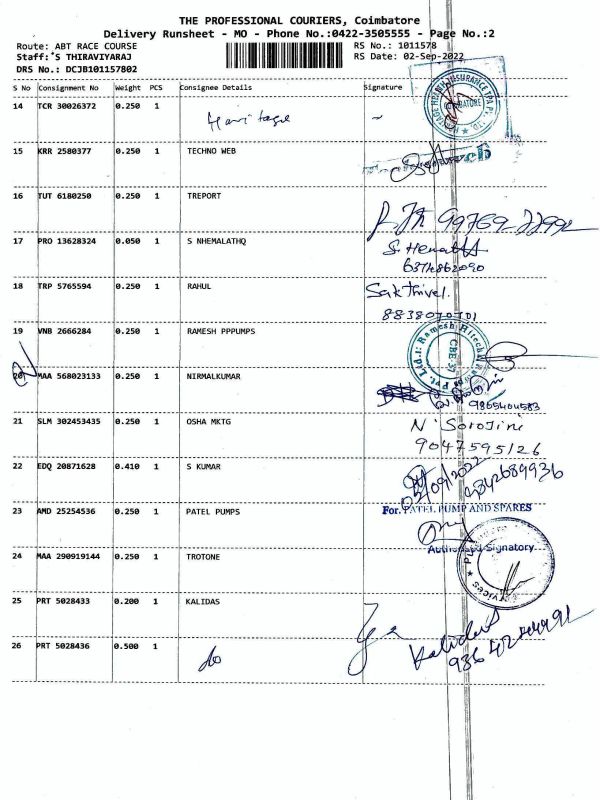 THE PROFESSIONAL COURIERS, Coimbatore
Delivery Runsheet - MO - Phone No.:0422-3505555 - Page No.:2
Route: ABT RACE COURSE
RS No.: 1011578
Staff: S THIRAVIYARAJ
RS Date: 02-Sep-2022
DRS No.: DCJB101157802
S No Consignment No Weight PCS Consignee Details Signature
14 TCR 30026372 0.250 1 Heritage
COIMBATORE
15 KRR 2580377 0.250 1 TECHNO WEB
16 TUT 6180250 0.250 1 TREPORT
17 PRO 13628324 0.050 1 S NHEMALATHQ
S. Hemalatha
6374862090
18 TRP 5765594 0.250 1 RAHUL Sakthivel.
8838070701
19 VNB 2666284 0.250 1 RAMESH PPPUMPS
20 MAA 568023133 0.250 1 NIRMALKUMAR
9865404583
21 SLM 302453435 0.250 1 OSHA MKTG N. Sorojini
9047595126
22 EDQ 20871628 0.410 1 S KUMAR
02/09/2022 9842689936
23 AMD 25254536 0.250 1 PATEL PUMPS For. PATEL PUMP AND SPARES
Authorised Signatory
24 MAA 290919144 0.250 1 TROTONE
25 PRT 5028433 0.200 1 KALIDAS
26 PRT 5028436 0.500 1 do Kalidas